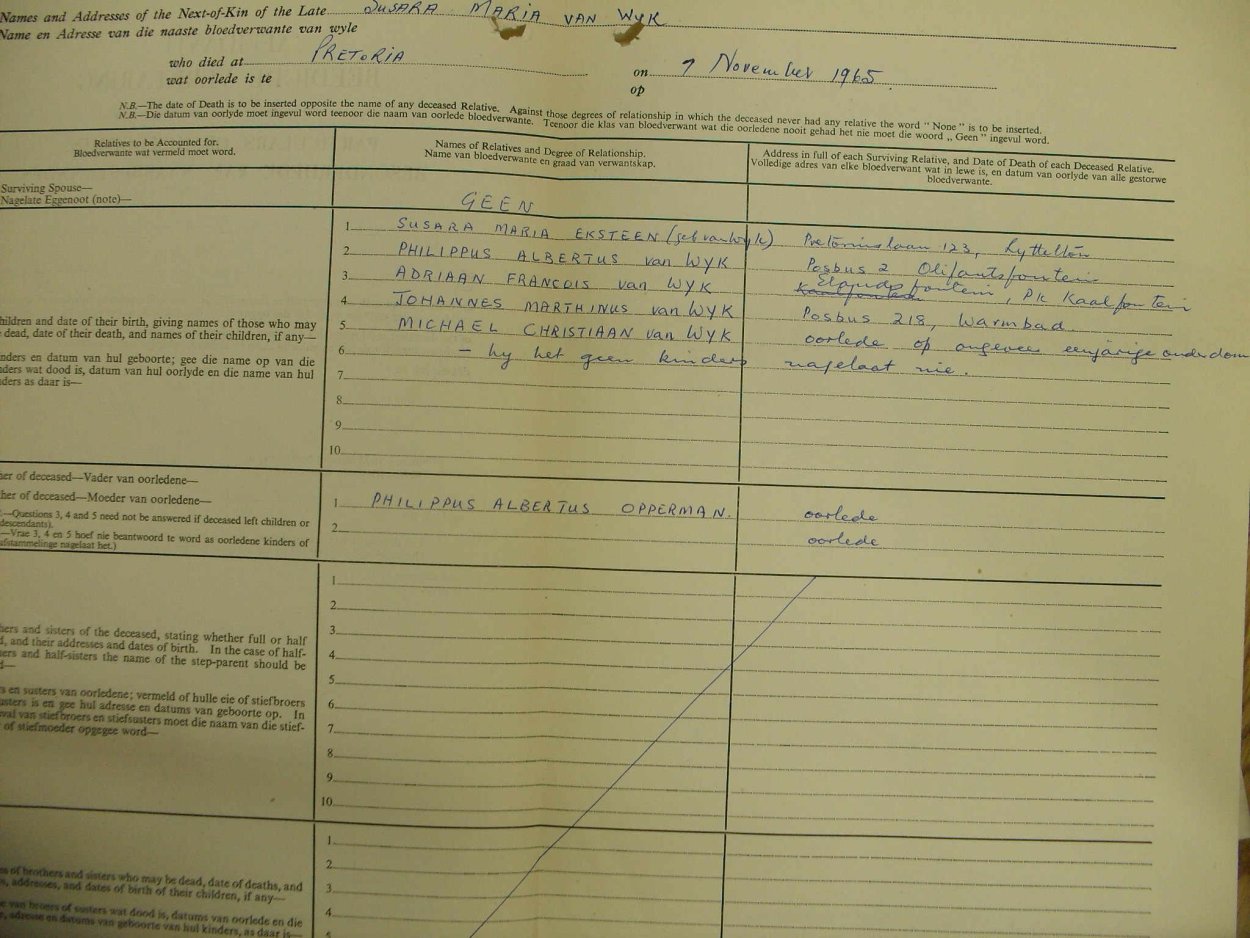 Names and Addresses of the Next-of-Kin of the Late SUSARA MARIA VAN WYK
Name en Adresse van die naaste bloedverwante van wyle
who died at PRETORIA on 7 November 1965
wat oorlede is te op
N.B.—The date of Death is to be inserted opposite the name of any deceased Relative. Against those degrees of relationship in which the deceased never had any relative the word "None" is to be inserted.
N.B.—Die datum van oorlyde moet ingevul word teenoor die naam van oorlede bloedverwante. Teenoor die klas van bloedverwant wat die oorledene nooit gehad het nie moet die woord „Geen" ingevul word.
Relatives to be Accounted for.
Bloedverwante wat vermeld moet word.
Names of Relatives and Degree of Relationship.
Name van bloedverwante en graad van verwantskap.
Address in full of each Surviving Relative, and Date of Death of each Deceased Relative.
Volledige adres van elke bloedverwant wat in lewe is, en datum van oorlyde van alle gestorwe
bloedverwante.
Surviving Spouse—
Nagelate Eggenoot (note)—
GEEN
1 SUSARA MARIA EKSTEEN (geb van Wyk) 123, Lyttelton
2 PHILIPPUS ALBERTUS van WYK Posbus 2 Olifantsfontein
3 ADRIAAN FRANCOIS van WYK Elandsfontein, PK Kaalfontein
4 JOHANNES MARTHINUS van WYK Posbus 218, Warmbad
5 MICHAEL CHRISTIAAN van WYK oorlede op ongeveer eenjarige ouderdom
6 – hy het geen kinders nagelaat nie.
7
8
9
10
hildren and date of their birth, giving names of those who may
dead, date of their death, and names of their children, if any—
nders en datum van hul geboorte; gee die name op van die
nders wat dood is, datum van hul oorlyde en die name van hul
ders as daar is—
her of deceased—Vader van oorledene—
her of deceased—Moeder van oorledene—
—Questions 3, 4 and 5 need not be answered if deceased left children or
descendants).
—Vrae 3, 4 en 5 hoef nie beantwoord te word as oorledene kinders of
afstammelinge nagelaat het.)
1 PHILIPPUS ALBERTUS OPPERMAN. oorlede
2 oorlede
1
2
3
4
5
6
7
8
9
10
hers and sisters of the deceased, stating whether full or half
d, and their addresses and dates of birth. In the case of half-
ers and half-sisters the name of the step-parent should be
d—
s en susters van oorledene; vermeld of hulle eie of stiefbroers
usters is en gee hul adresse en datums van geboorte op. In
val van stiefbroers en stiefsusters moet die naam van die stief-
of stiefmoeder opgegee word—
1
2
3
4
5
es of brothers and sisters who may be dead, date of deaths, and
s, addresses, and dates of birth of their children, if any—
e van broers of susters wat dood is, datums van oorlede en die
e, adresse en datums van geboorte van hul kinders, as daar is—